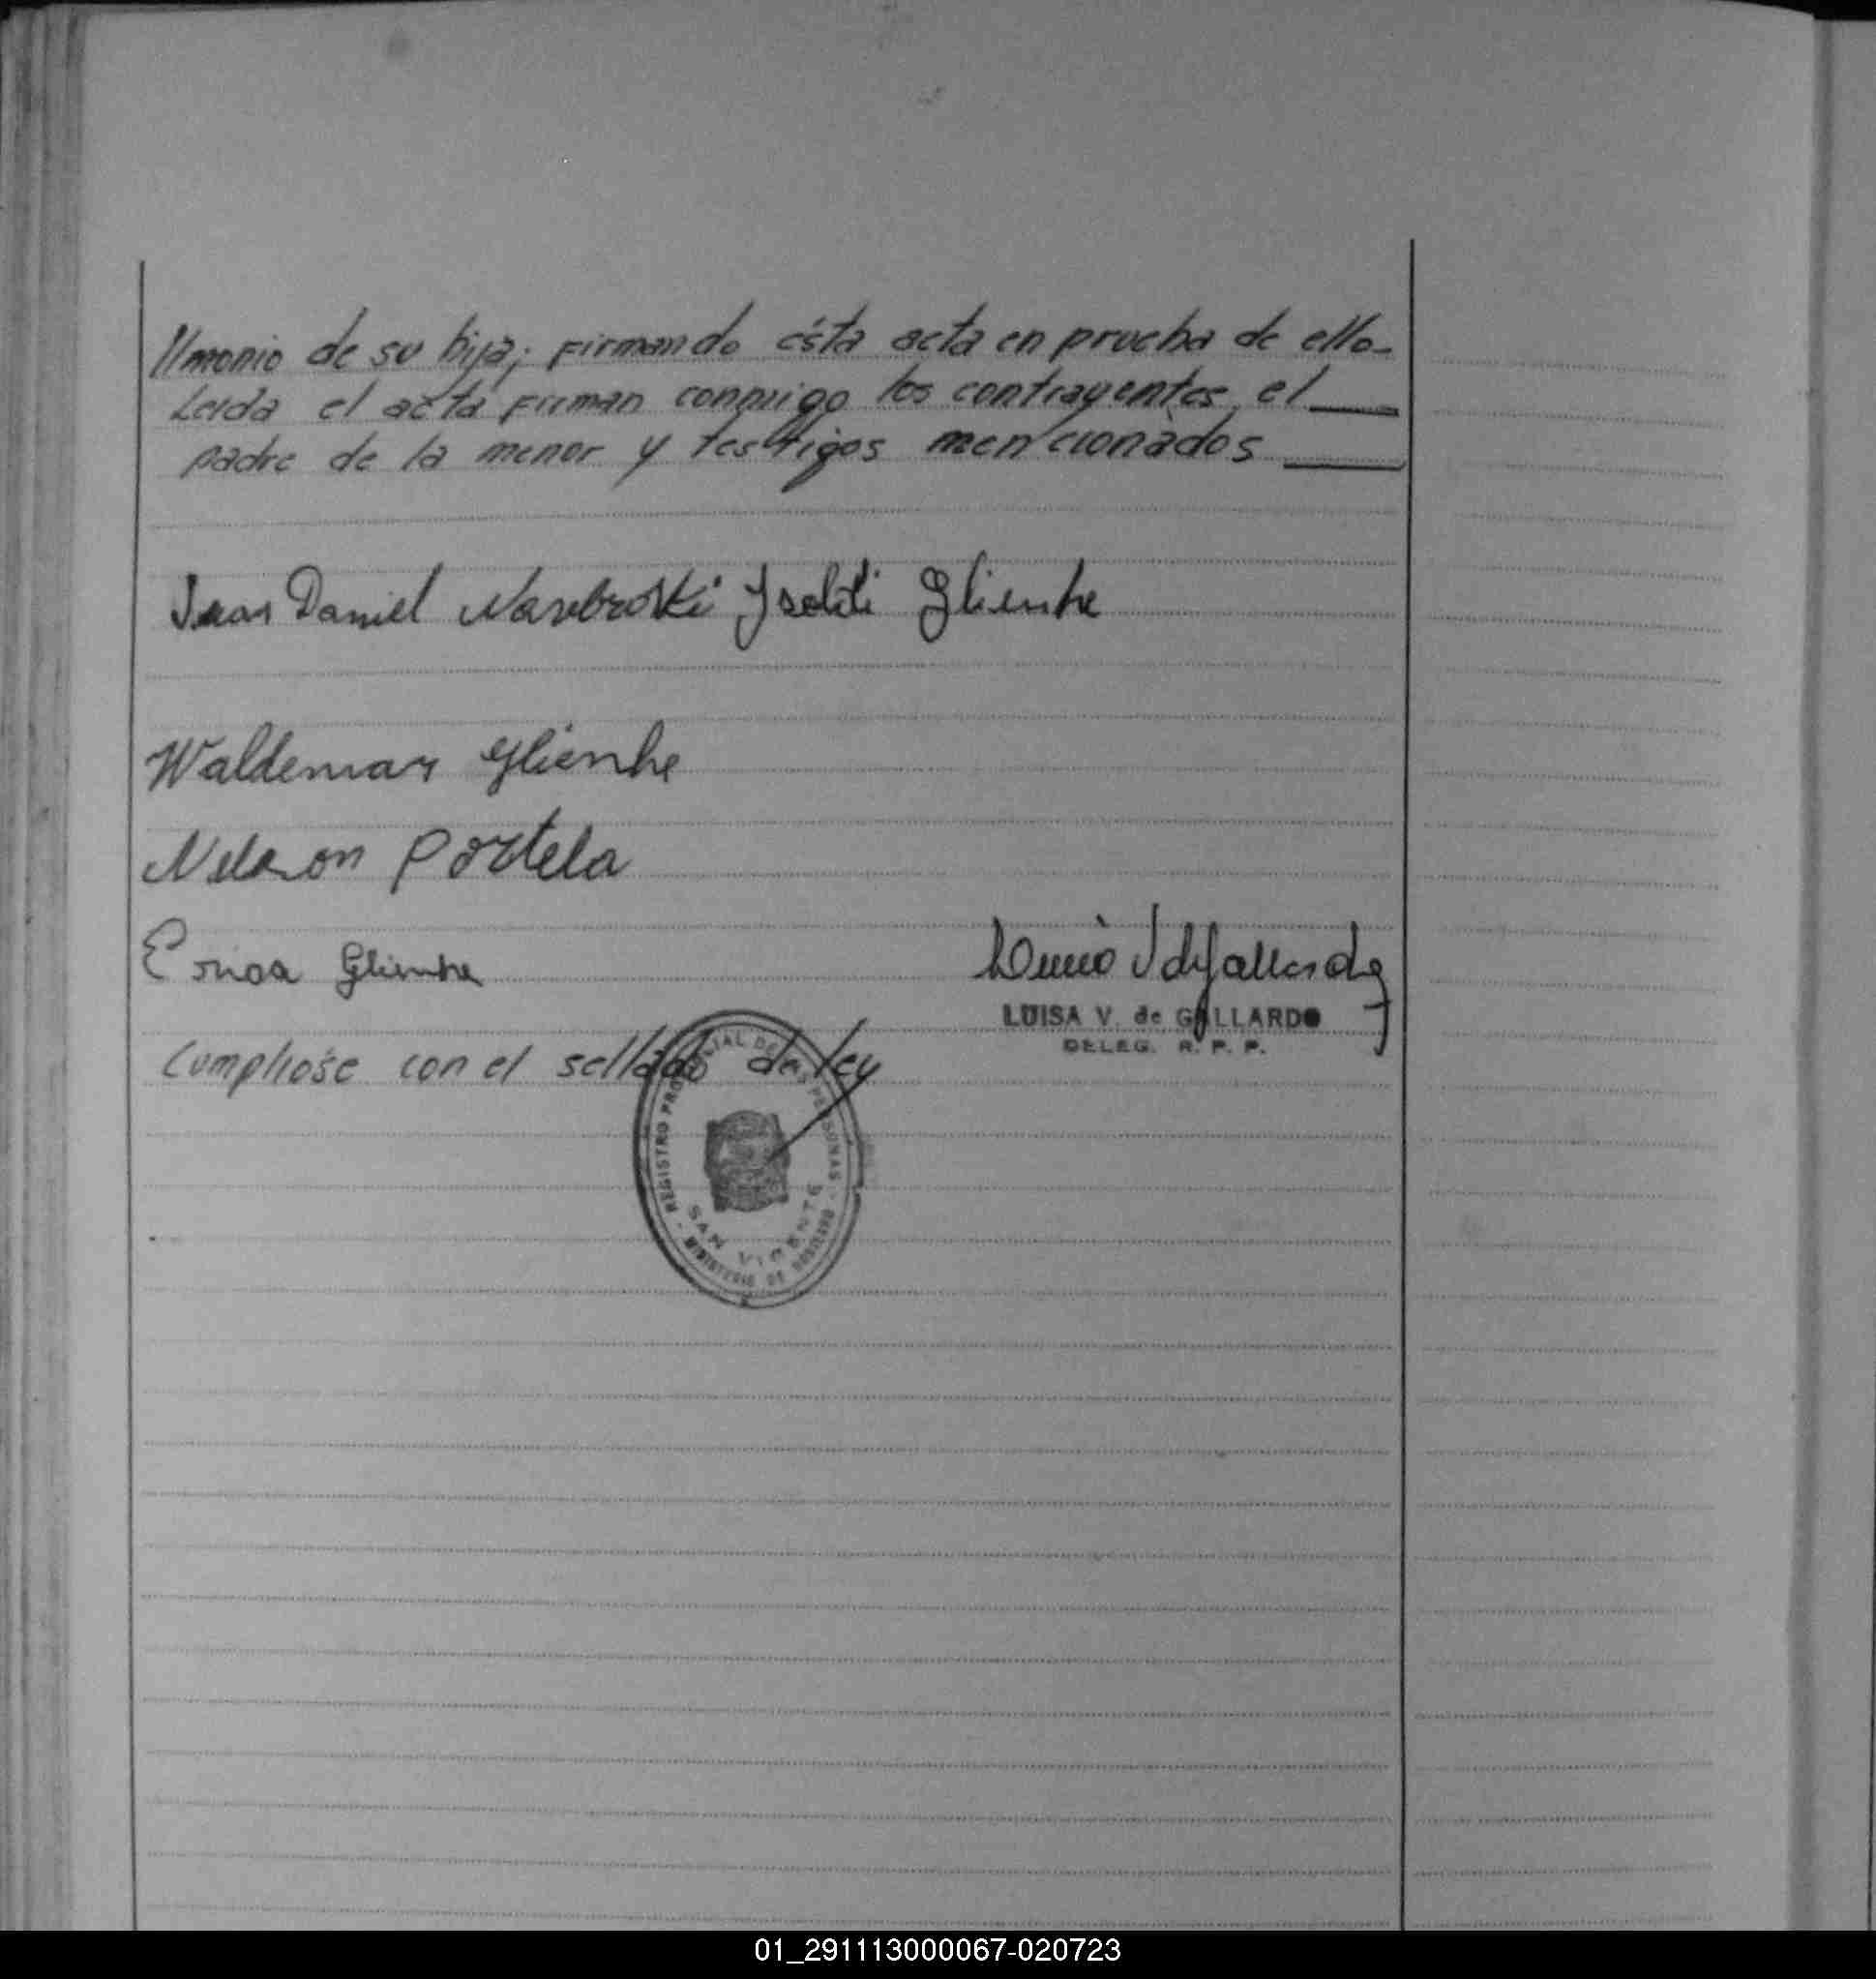 //monio de su hija; firmando ésta acta en prueba de ello-
Leida el acta firman conmigo los contrayentes, el
padre de la menor y testigos mencionados
Juan Daniel Isolde Glienke
Waldemar Glienke
Nelson Portela
Erica Glienke
LUISA V. de GALLARDO
DELEG. R. P. P.
Cumplióse con el sellado de ley
REGISTRO PROVINCIAL DE LAS PERSONAS
SAN VICENTE
MINISTERIO DE GOBIERNO
01_291113000067-020723